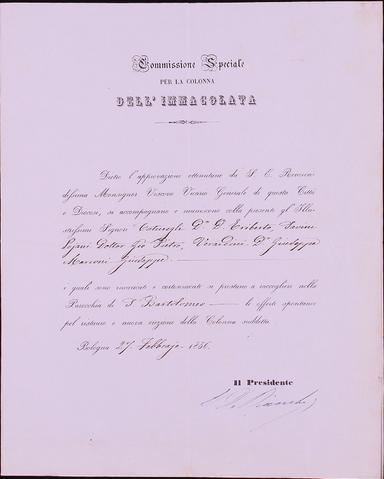 Commissione Speciale
PER LA COLONNA
DELL'IMMACOLATA
Dietro l'approvazione ottenutane da S. E. Reveren-
dissima Monsignor Vescovo Vicario Generale di questa Città
e Diocesi, si accompagnano e muniscono colla presente gl' Illu-
strissimi Signori Dr. D. Eriberto, Savini
Dottor Gio Pietro, Verardini Dr. Giuseppe
Marconi Giuseppe
i quali sono incaricati e cortesemente si prestano a raccogliere nella
Parrocchia di S. Bartolomeo le offerte spontanee
pel restauro e nuova erezione della Colonna suddetta.
Bologna 27 Febbrajo 1856.
Il Presidente